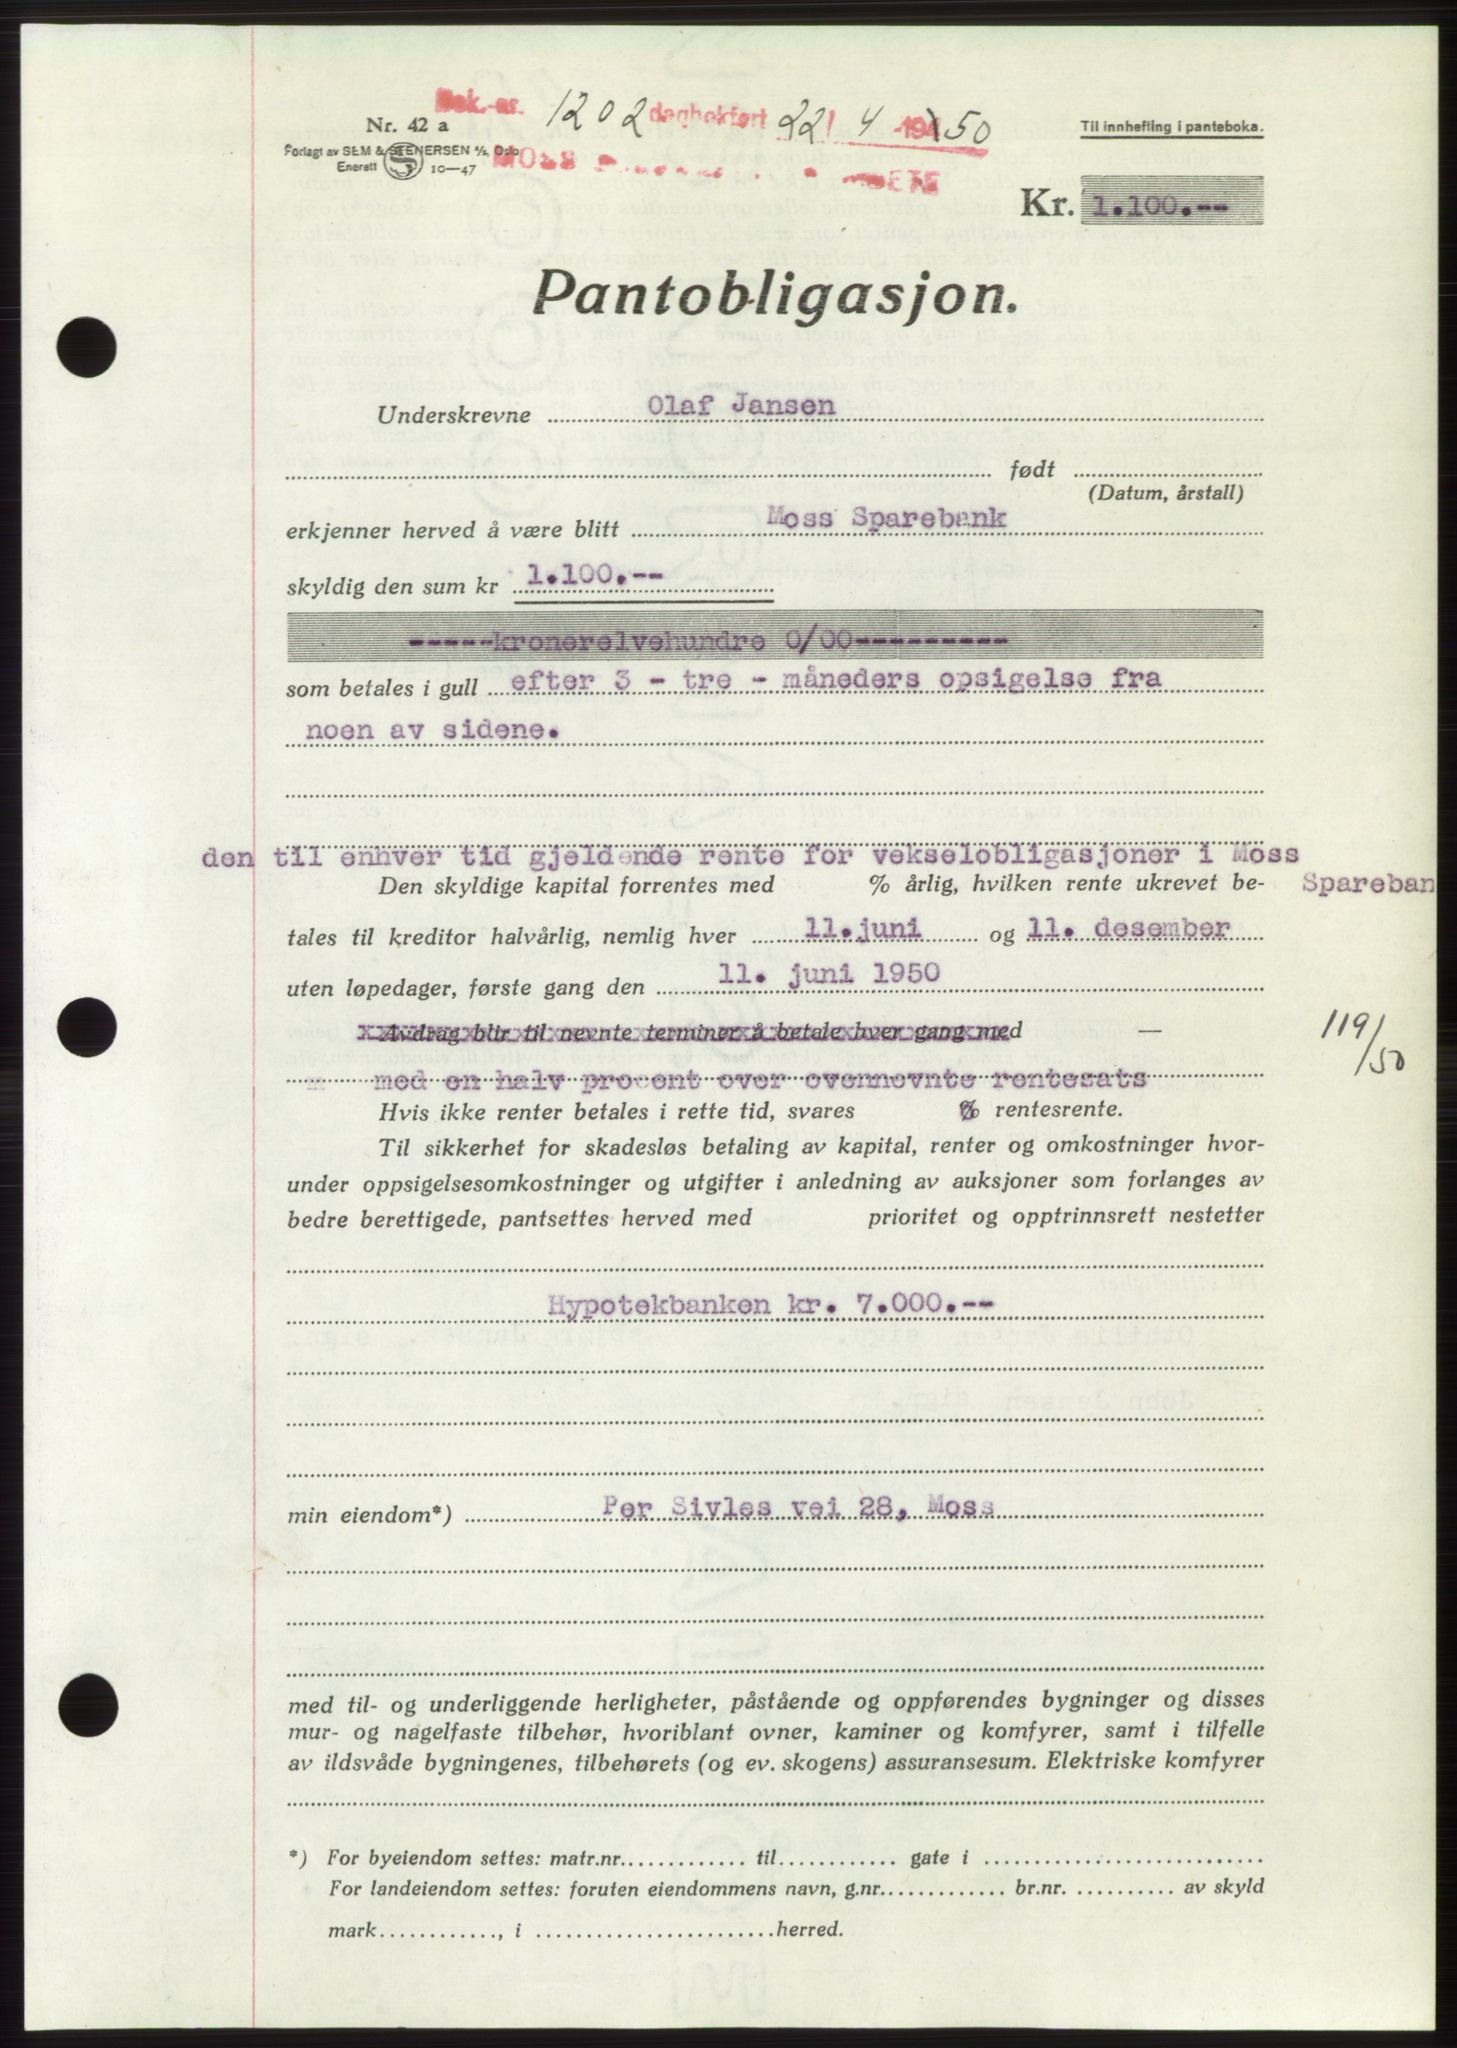 Dok.-nr. 1202 dagbokført 22/ 4 -19450
Nr. 42 a
Til innhefting i panteboka.
Forlagt av SEM & STENERSEN A/S, Oslo
Enerett 10—47
MOSS
Kr. 1.100.--
Pantobligasjon.
Underskrevne Olaf Jansen
født
(Datum, årstall)
erkjenner herved å være blitt Moss Sparebank
skyldig den sum kr 1.100.--
-----kronerelvehundre 0/00----------
som betales i gull efter 3 - tre - måneders opsigelse fra
noen av sidene.
den til enhver tid gjeldende rente for vekselobligasjoner i Moss
Den skyldige kapital forrentes med % årlig, hvilken rente ukrevet be- Spareban
tales til kreditor halvårlig, nemlig hver 11.juni og 11. desember
uten løpedager, første gang den 11. juni 1950
Avdrag blir til nevnte terminer å betale hver gang med —
119/
/50
med en halv procent over ovennevnte rentesats
Hvis ikke renter betales i rette tid, svares % rentesrente.
Til sikkerhet for skadesløs betaling av kapital, renter og omkostninger hvor-
under oppsigelsesomkostninger og utgifter i anledning av auksjoner som forlanges av
bedre berettigede, pantsettes herved med prioritet og opptrinnsrett nestetter
Hypotekbanken kr. 7.000.--
min eiendom*) Per Sivles vei 28, Moss
med til- og underliggende herligheter, påstående og oppførendes bygninger og disses
mur- og nagelfaste tilbehør, hvoriblant ovner, kaminer og komfyrer, samt i tilfelle
av ildsvåde bygningenes, tilbehørets (og ev. skogens) assuransesum. Elektriske komfyrer
*) For byeiendom settes: matr.nr. til gate i
For landeiendom settes: foruten eiendommens navn, g.nr. br.nr. av skyld
mark, i herred.